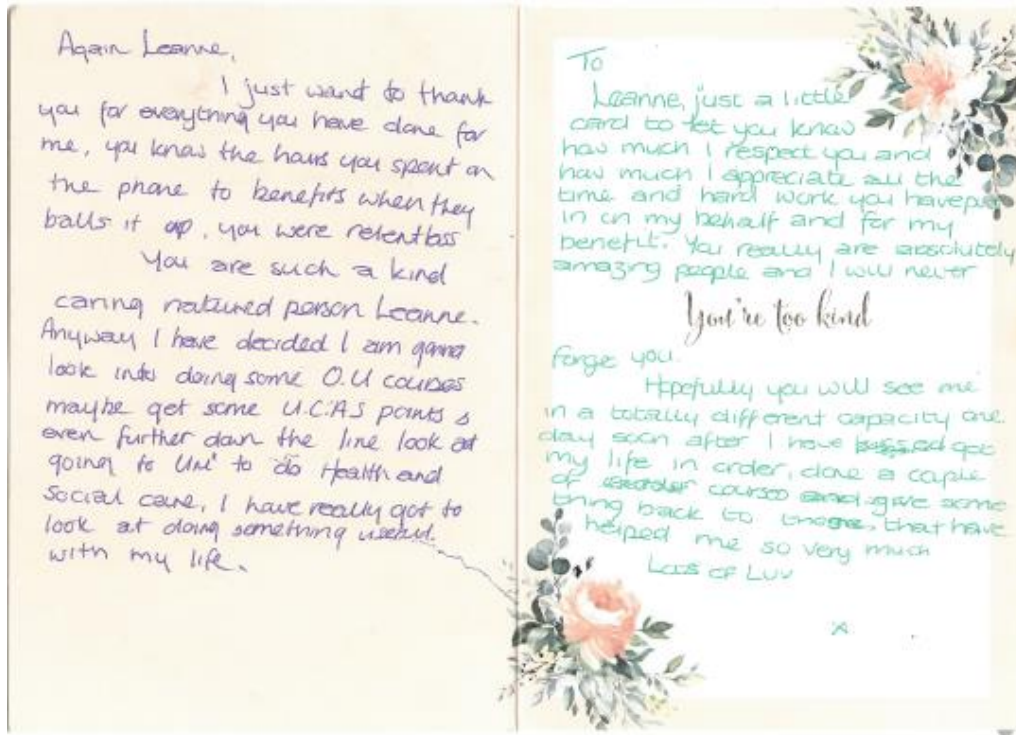 Again Leanne,
I just want to thank
you for everything you have done for
me, you know the hours you spent on
the phone to benefits when they
balls it up, you were relentless
You are such a kind
caring natured person Leanne.
Anyway I have decided I am gonna
look into doing some O.U courses
maybe get some U.C.A.S points &
even further down the line look at
going to Uni to do Health and
social care, I have really got to
look at doing something useful
with my life.
To
Leanne, just a little
card to let you know
how much I respect you and
how much I appreciate all the
time and hard work you have put
in on my behalf and for my
benefit. You really are absolutely
amazing people and I will never
You're too kind
forge you.
Hopefully you will see me
in a totally different capacity one
day soon after I have got
my life in order, done a couple
of courses and give some
thing back to those, that have
helped me so very much
Lots of Luv
x